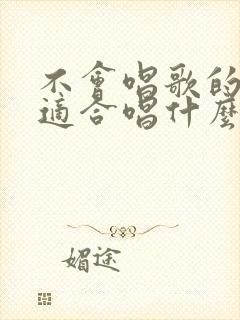 不會唱歌的
適合唱什麼
媚途